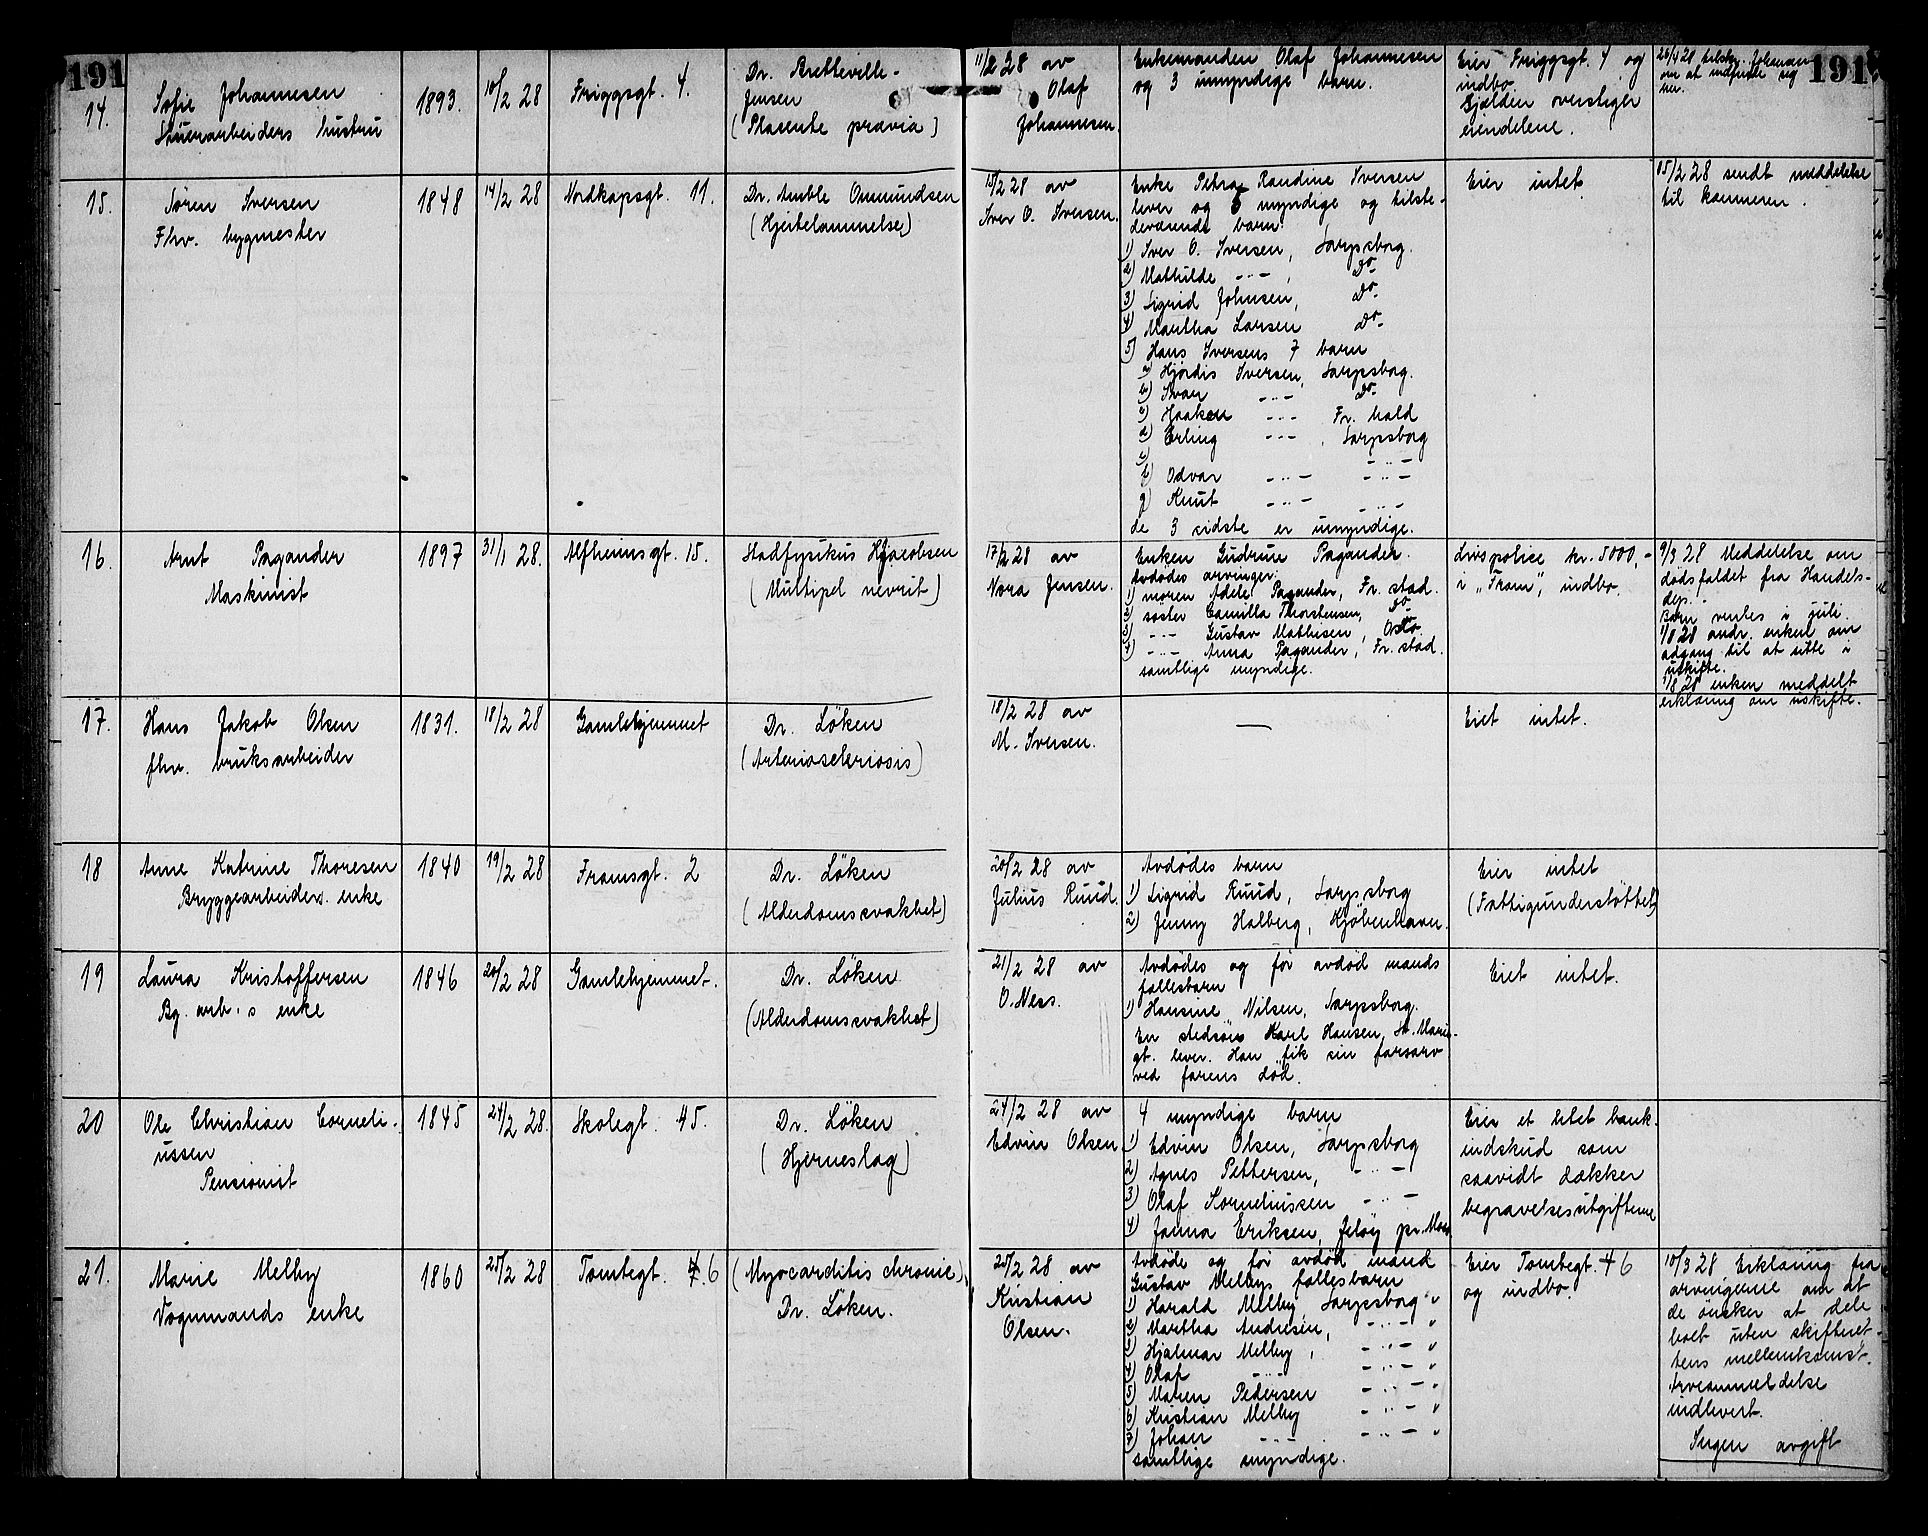 191
191
14.
Sofie Johannesen
Stuerarbeiders hustru
1893.
10/2 28
Friggsgt. 4.
Dr. Bretteville-
Jensen
(Placente prævia)
11/2 28 av
Olaf
Johannesen.
Enkemanden Olaf Johannesen
og 3 umyndige barn.
Eier Friggsgt. 4 og
indbo.
Gjælden overstiger
eiendelene.
Johannesen
om at indfinde sig
her.
15.
Søren Iversen
Fhv. bygmester
1848
14/2 28
Nordkapsgt. 11.
Dr. Amble Ommundsen
(Hjertelammelse)
15/2 28 av
Iver O. Iversen.
Enke Petra Randine Iversen
lever og 5 myndige og tilste-
deværende barn:
1) Iver O. Iversen, Sarpsborg.
2) Mathilde -"- , Do.
3) Sigrid Johnsen, Do.
4) Martha Larsen Do.
5) Hans Iversens 7 barn
a) Hjørdis Iversen, Sarpsborg.
b) Ivar -"- Do.
c) Haaken -"- Fr. hald
d) Erling -"- , Sarpsborg
e)
f) Odvar -"- -"-
g) Knut -"- -"-
de 3 sidste er umyndige.
Eier intet.
15/2 28 sendt meddelelse
til kæmneren.
16.
Arnt Pagander
Maskinist
1897
31/1 28.
Alfheimsgt. 15.
Stadfysikus Hjacobsen
(Multipel nevrit)
17/2 28 av
Nora Jensen.
Enken Gudrun Pagander.
Avdødes arvinger:
1) moren Adele Pagander, Fr. stad.
2) søster Camilla Thorstensen, Do
3) -"- Gustav Mathisen, Oslo
4) -"- Anna Pagander, Fr. stad.
samtlige myndige.
Livspolice kr. 5000,-
i "Fram", indbo.
9/3 28 Meddelelse om
dødsfaldet fra Handels-
dep.
Barn ventes i juli.
1/8 28 andr. enken om
adgang til at sitte i
uskifte.
1/8 28 enken meddelt
erklæring om uskifte.
17.
Hans Jakob Olsen
fhv. bruksarbeider
1831.
18/2 28
Gamlehjemmet
Dr. Löken
(Arterioscleriosis)
18/2 28 av
M. Iversen.
—
Eiet intet.
18
Anne Katrine Thoresen
Bryggearbeiders enke
1840
19/2 28
Framsgt. 2
Dr. Löken
(Alderdomssvakhet)
20/2 28 av
Julius Ruud.
Avdødes barn
1) Sigrid Ruud, Sarpsborg
2) Jenny Halberg, Kjöbenhavn.
Eier intet
(Fattigunderstöttet)
19
Laura Kristoffersen
Bg. arb.s enke
1846
20/2 28
Gamlehjemmet.
Dr. Löken
(Alderdomssvakhet)
21/2 28 av
O. Ness.
Avdødes og før avdød mands
fællesbarn
1) Hansine Nilsen, Sarpsborg.
En stedsøn Karl Hansen, St. Marie-
gt. lever. Han fik sin farsarv
ved farens død.
Eiet intet.
20
Ole Christian Corneli-
ussen
Pensionist
1845
24/2 28.
Skolegt. 45.
Dr. Löken
(Hjerneslag)
24/2 28 av
Edvin Olsen.
4 myndige barn
1) Edvin Olsen, Sarpsborg
2) Agnes Pettersen, -"-
3) Olaf Korneliussen -"-
4) Janna Eriksen, Jeløy pr. Moss
Eier et litet bank-
indskud som
saavidt dækker
begravelsesutgifterne
21.
Marie Melby
Vognmands enke
1860
25/2 28
Tomtegt. 46
(Myocarditis chronic)
Dr. Löken.
25/2 28 av
Kristian
Olsen.
Avdøde og før avdød mand
Gustav Melbys fællesbarn
1) Harald Melby, Sarpsborg "
2) Martha Andresen, -"- "
3) Hjalmar Melby, -"- "
4) Olaf -"- -"- "
5) Maren Pedersen -"- "
6) Kristian Melby -"- "
7) Johan -"- -"- "
samtlige myndige.
Eier Tomtegt. 46
og indbo.
10/3 28 Erklæring fra
arvingerne om at
de önsker at dele
boet uten skifteret-
tens mellemkomst.
Arveanmeldelse
indlevert.
Ingen avgift